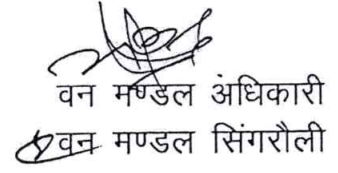 वन मण्डल अधिकारी
वन मण्डल सिंगरौली